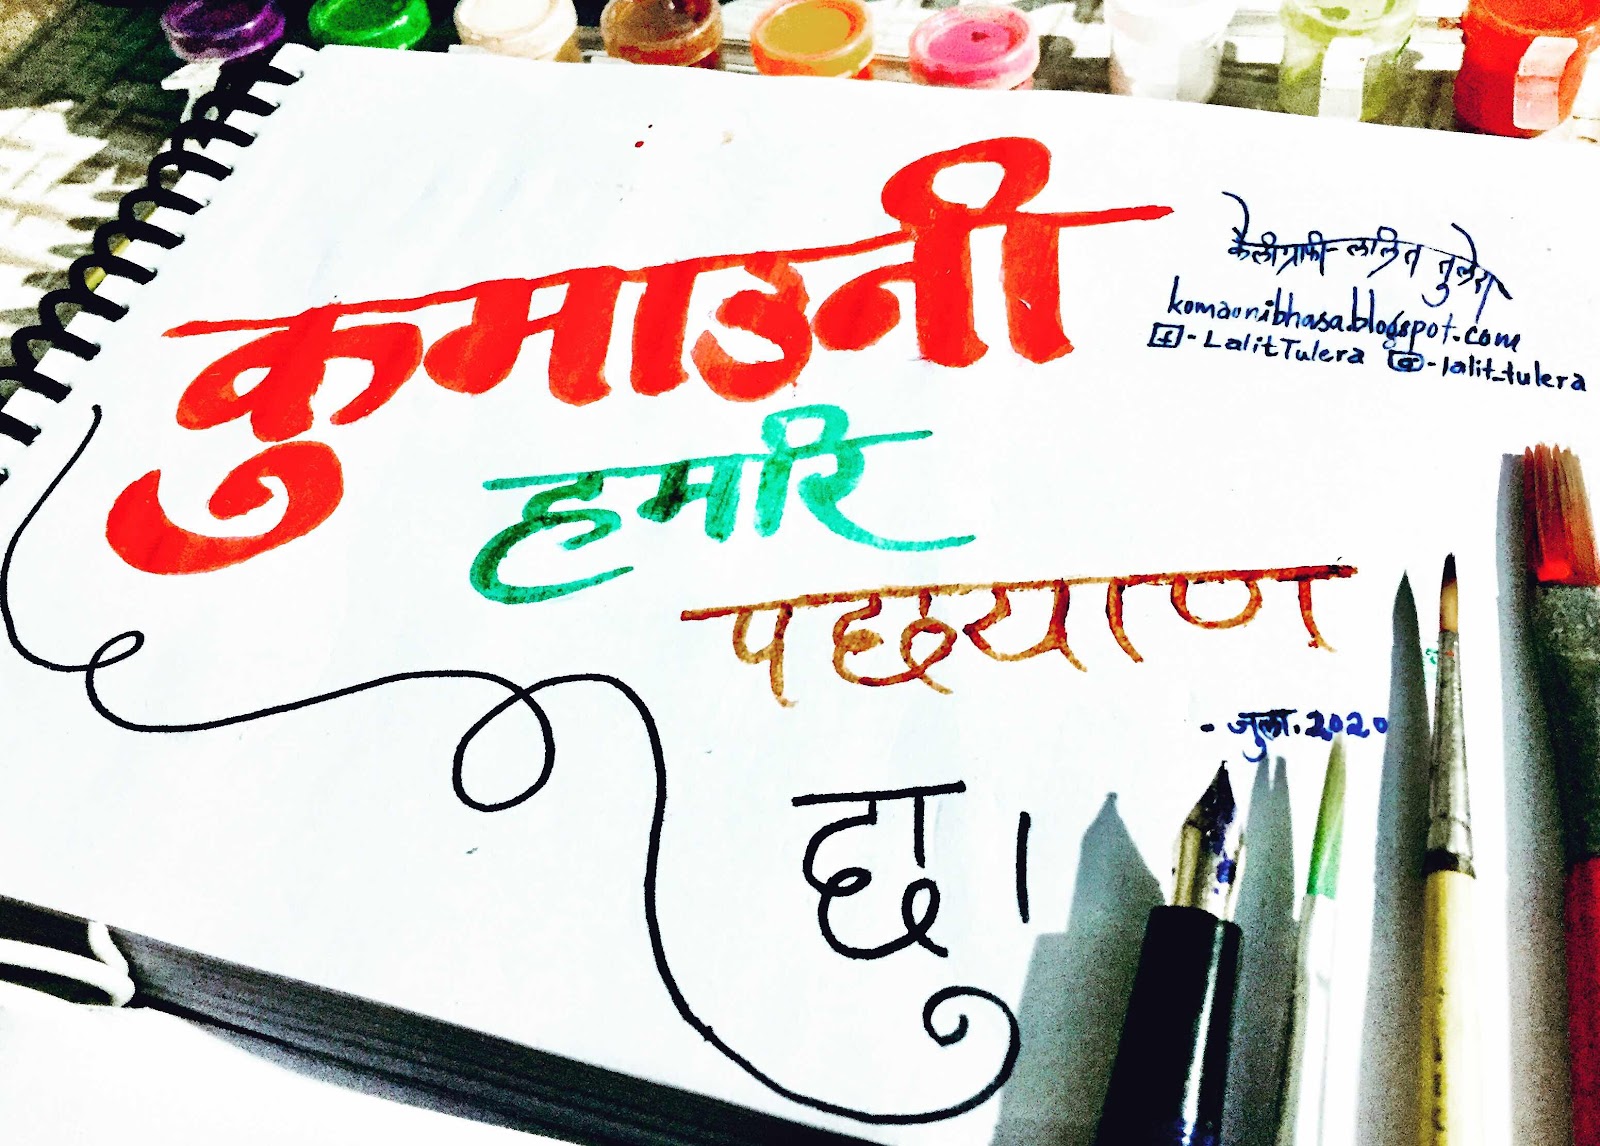 कुमाउनी
हमरि
पछ्याण
छ।
कैलीग्राफी-ललित तुलेरा
komaonibhasa.blogspot.com
f-LalitTulera @-lalit_tulera
-जुला.2020